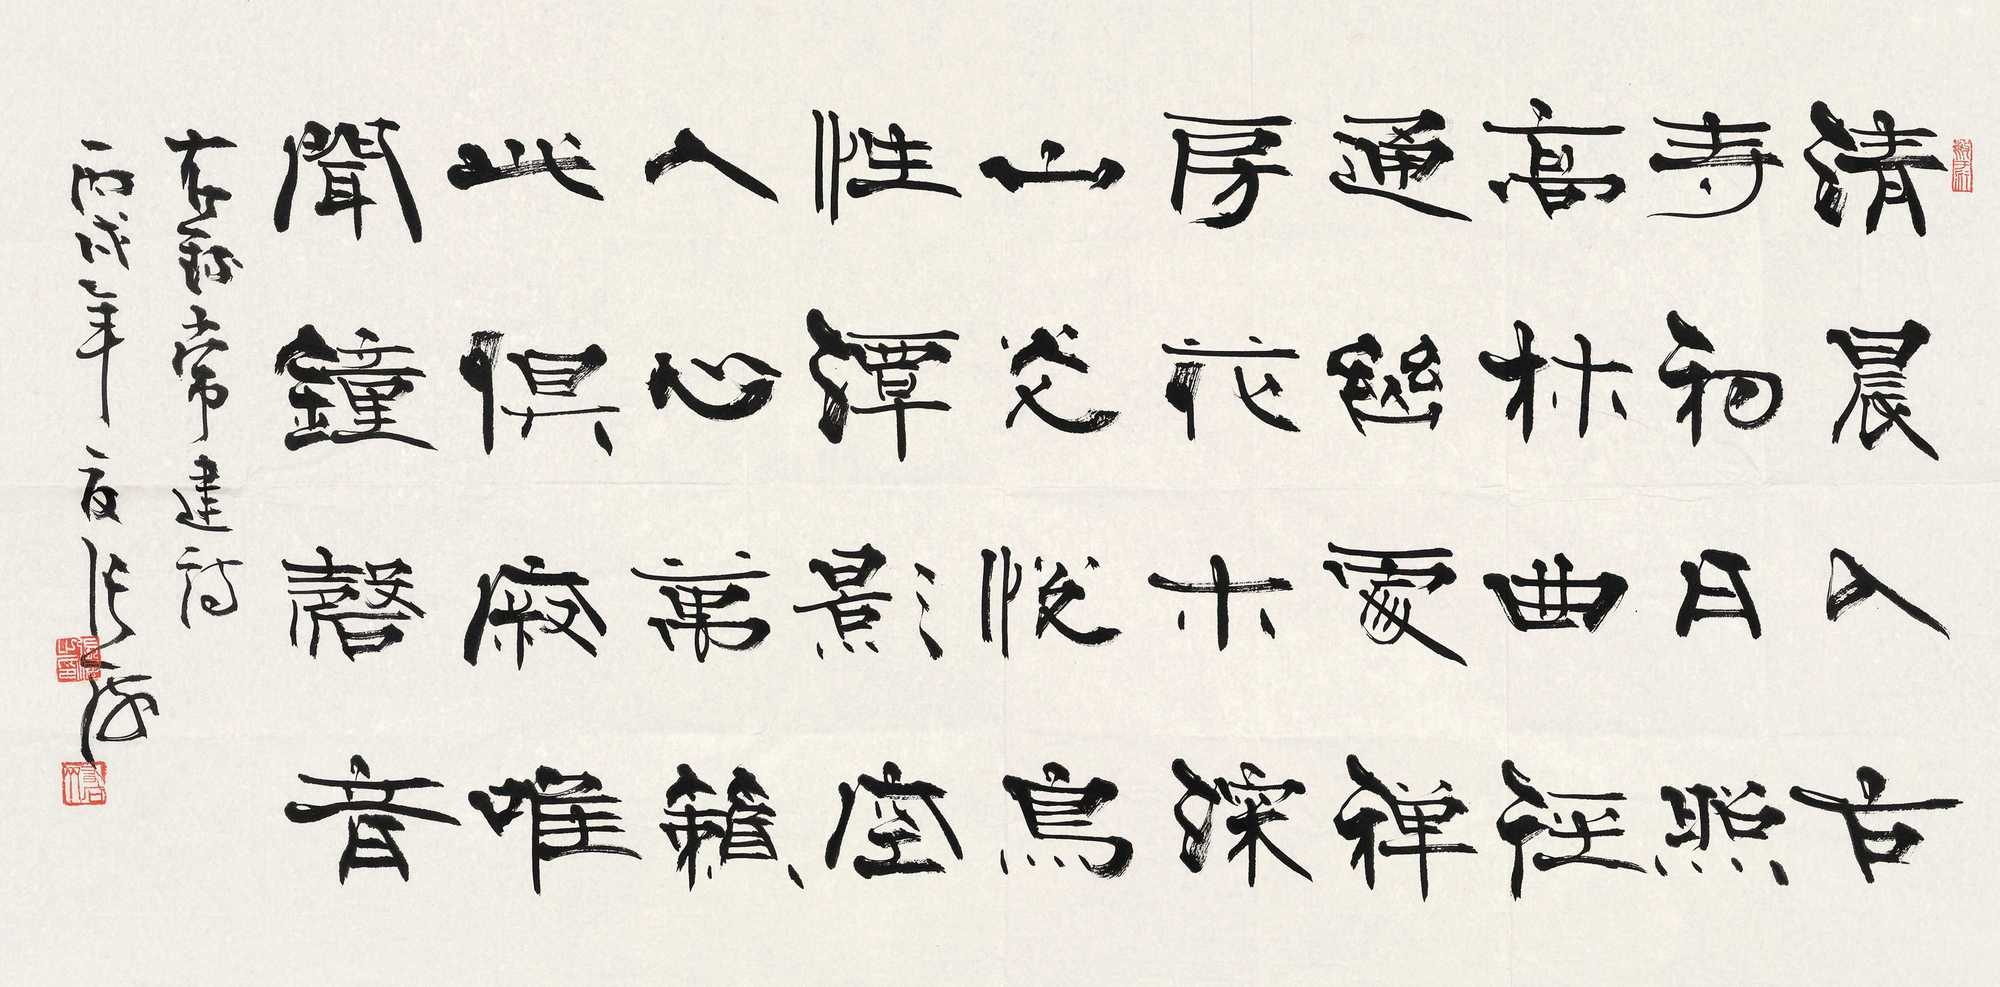 清晨入古
寺初日照
高林曲徑
通幽處禅
房花木深
山光悦鳥
性潭影空
人心萬籟
此俱寂唯
聞鐘磬音
右錄常建詩
丙戌年夏張海